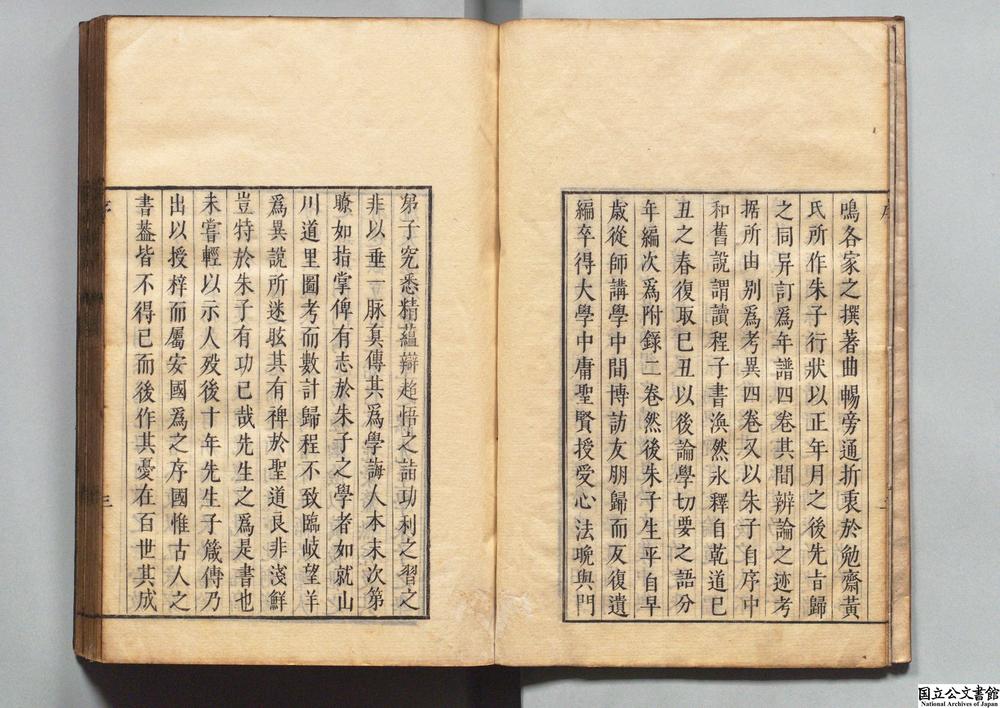 鳴各家之撰著曲暢旁通折衷於勉齋黃
氏所作朱子行狀以正年月之後先旨歸
之同异訂爲年譜四卷其間辨論之迹考
据所由别爲考異四卷又以朱子自序中
和舊說謂讀程子書渙然氷釋自乾道己
丑之春復取己丑以後論學切要之語分
年編次爲附錄二卷然後朱子生平自早
歲從師講學中間博訪友朋歸而反復遺
編卒得大學中庸聖賢授受心法晩與門
弟子究悉精蘊辯超悟之詰功利之習之
非以垂一脉真傳其爲學誨人本末次第
瞭如指掌俾有志於朱子之學者如就山
川道里圖考而數計歸程不致臨岐望羊
爲異說所迷眩其有禆於聖道良非淺鮮
豈特於朱子有功已哉先生之爲是書也
未嘗輕以示人歿後十年先生子箴傳乃
出以授梓而屬安國爲之序國惟古人之
書葢皆不得已而後作其憂在百世其成
序
三
国立公文書館
National Archives of Japan